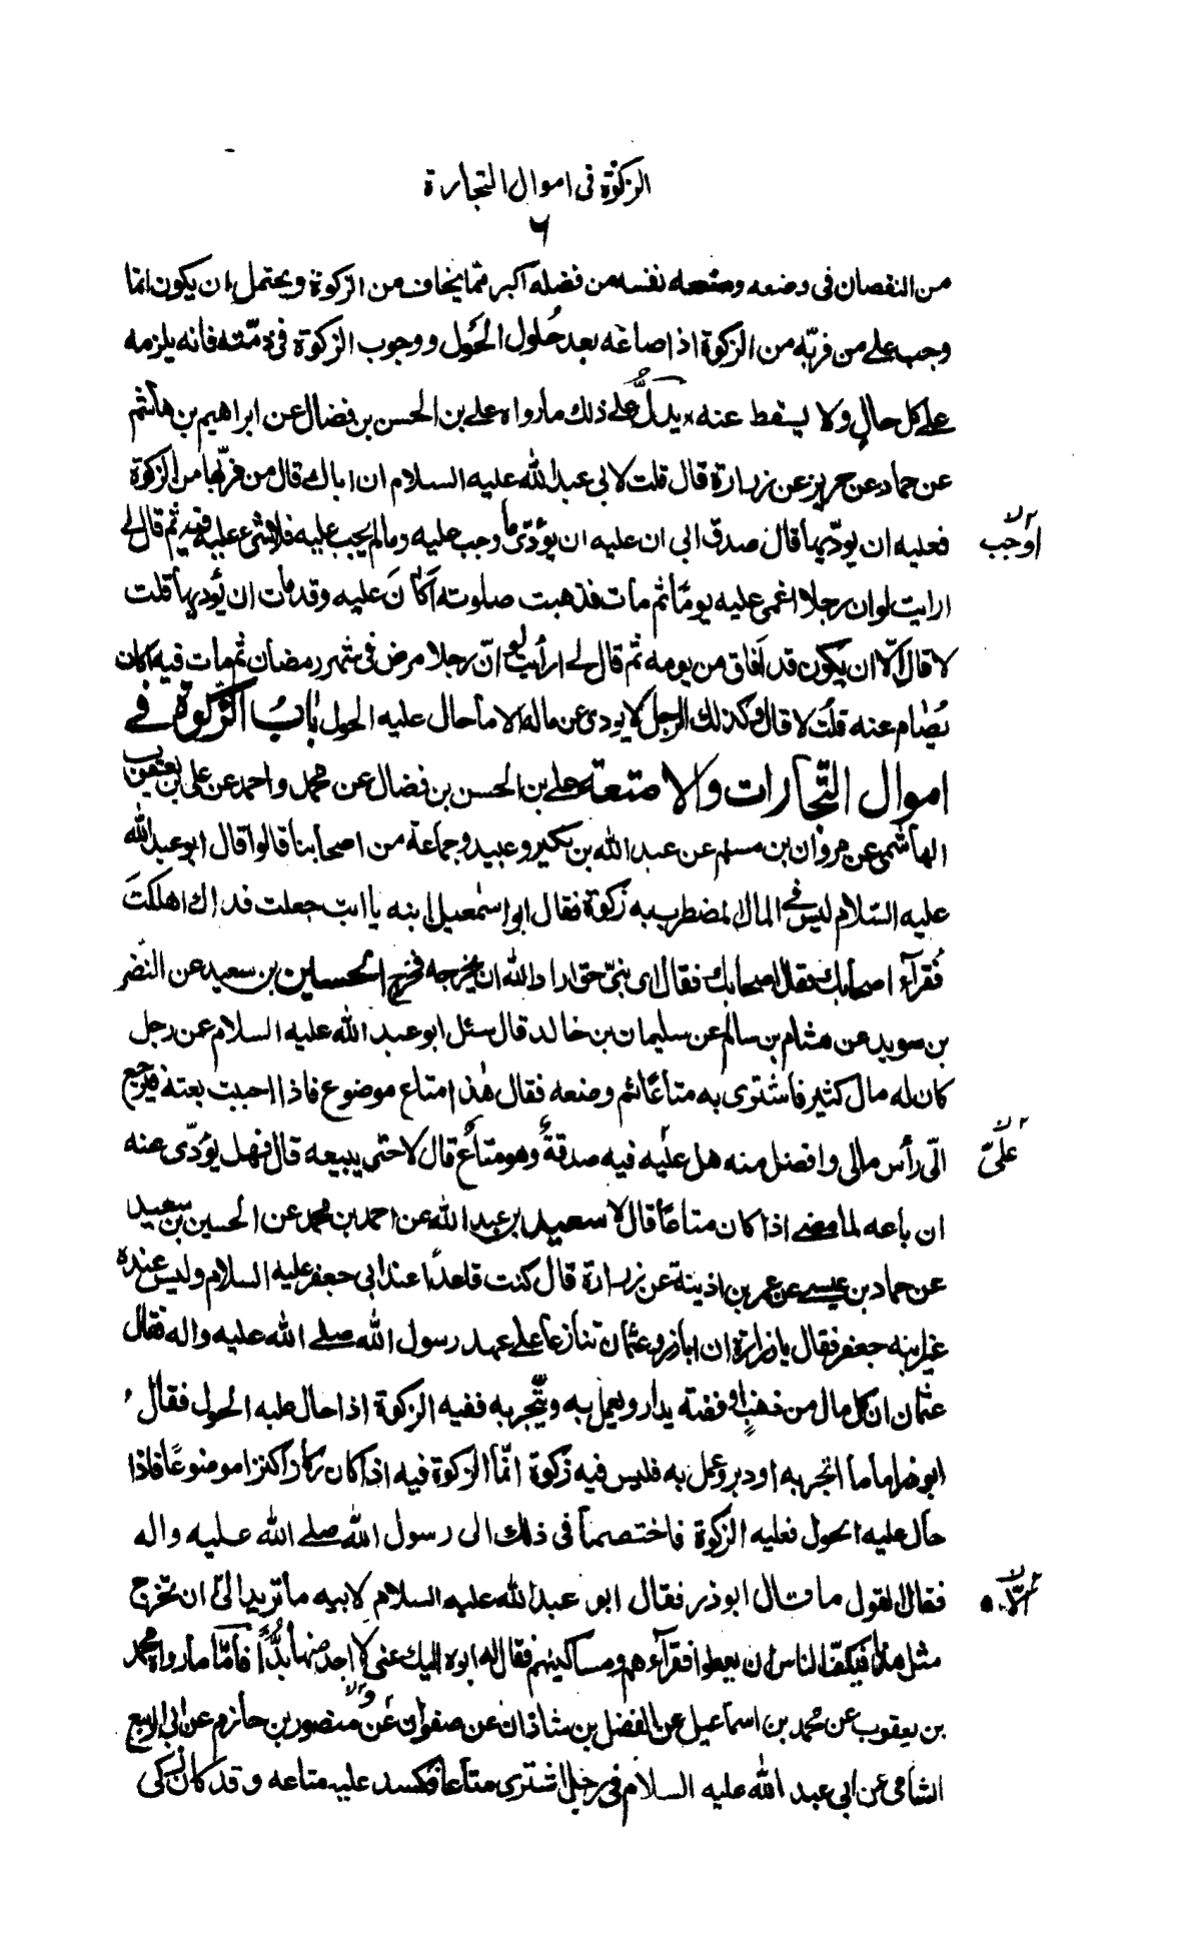 الزكوة فى اموال التجارة
٦
من النقصان فى وضعه ومنعه نفسه من فضله اكبر مما يخاف من الزكوة ويحتمل ان يكون انما
وجب على من فر به من الزكوة اذا صاغه بعد حُلول الحَول ووجوب الزكوة فى ذمّته فانه يلزمه
على كل حالٍ ولا يسقط عنه يدلُّ على ذلك مارواه على بن الحسن بن فضال عن ابراهيم بن هاشم
عن حماد عن حريز عن زرارة قال قلت لابى عبد الله عليه السلام ان اباك قال من فرّ بها من الزكوة
فعليه ان يودّيها قال صدق ابى ان عليه ان يؤدّى ما وجب عليه ومالم يجب عليه فلا شى ء عليه فيه ثم قال لى
اوجب
ارايت لو ان رجلا اغمى عليه يومًا ثم مات فذهبت صلوته اكان عَليه وقد مات ان يُؤديها قلت
لا قال الّا ان يكون قد افاق من يومه ثم قال لى ارأيت لو انّ رجلا مرض فى شهر رمضان ثم مات فيه اكان
يُصٰام عنه قلت لا قال وكذلك الرجل لا يودى عن ماله الا ما حال عليه الحول بابُ الزّكوة فى
اموال التّجارات والامتعة على بن الحسن بن فضال عن محمد واحمد عن على بن يعقوب
الهاشمى عن مروان بن مسلم عن عبد الله بن بكير وعبيد وجماعة من اصحابنا قالوا قال ابو عبد الله
عليه السّلام ليس فى المال المضطرب به زكوة فقال ابو اسمٰعيل ابنه يا ابت جعلت فداك اهلكتَ
فُقرآء اصحابك فقال اى بنىّ حق اراد الله ان يخرجه فخرج الحسين بن سعيد عن النضر
بن سويد عن هشام بن سالم عن سليمان بن خالد قال سئل ابو عبد الله عليه السلام عن رجل
كان له مال كثير فاشترى به متاعًا ثم وضعه فقال هٰذا متاع موضوع فاذا احببت بعته فيرجع
الّى رأس مالى وافضل منه هل عليه فيه صدقةٌ وهو متاعٌ قال لا حتى يبيعه قال فهل يؤدّى عنه
علىّ
ان باعه لما مضى اذا كان متاعًا قال لا سعد بن عبد الله عن احمد بن محمد عن الحسين بن سعيد
عن حماد بن عيسى عن عمر بن اذينة عن زرارة قال كنت قاعدًا عند ابى جعفر عليه السلام وليس عنده
غير ابنه جعفر فقال يا زرارة ان اباذر وعثمان تنازعا على عهد رسول الله صلى الله عليه واله فقال
عثمان ان كل مال من ذهبٍ او فضة يدار ويعمل به ويتّجر به ففيه الزكوة اذا حال عليه الحول فقال
ابوذر اما ما اتجر به او دير وعمل به فليس فيه زكوة انّما الزكوة فيه اذا كان ركازا كنزا موضوعًا فاذا
حال عليه الحول فعليه الزكوة فاختصما فى ذلك الى رسول الله صلى الله عليه واله
فقال القول ما قال ابوذر فقال ابو عبد الله عليه السلام لابيه ما تريد الى ان تخرج
الّا
مثل هذا فيكفّ الناس ان يعطوا فقرآءهم ومساكينهم فقال له ابوه اليك عنى لا اجد منها بُدًّا فامّا مارواه محمد
بن يعقوب عن محمد بن اسماعيل عن الفضل بن شاذان عن صفوان عن منصور بن حازم عن ابى الربيع
الشامى عن ابى عبد الله عليه السلام فى رجل اشترى متاعًا فكسد عليه متاعه وقد كان زكى